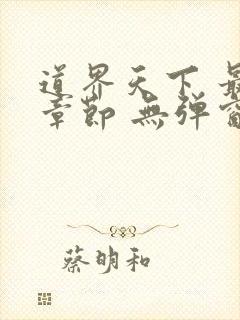 道界天下 最
章節 無彈窗
蔡明和